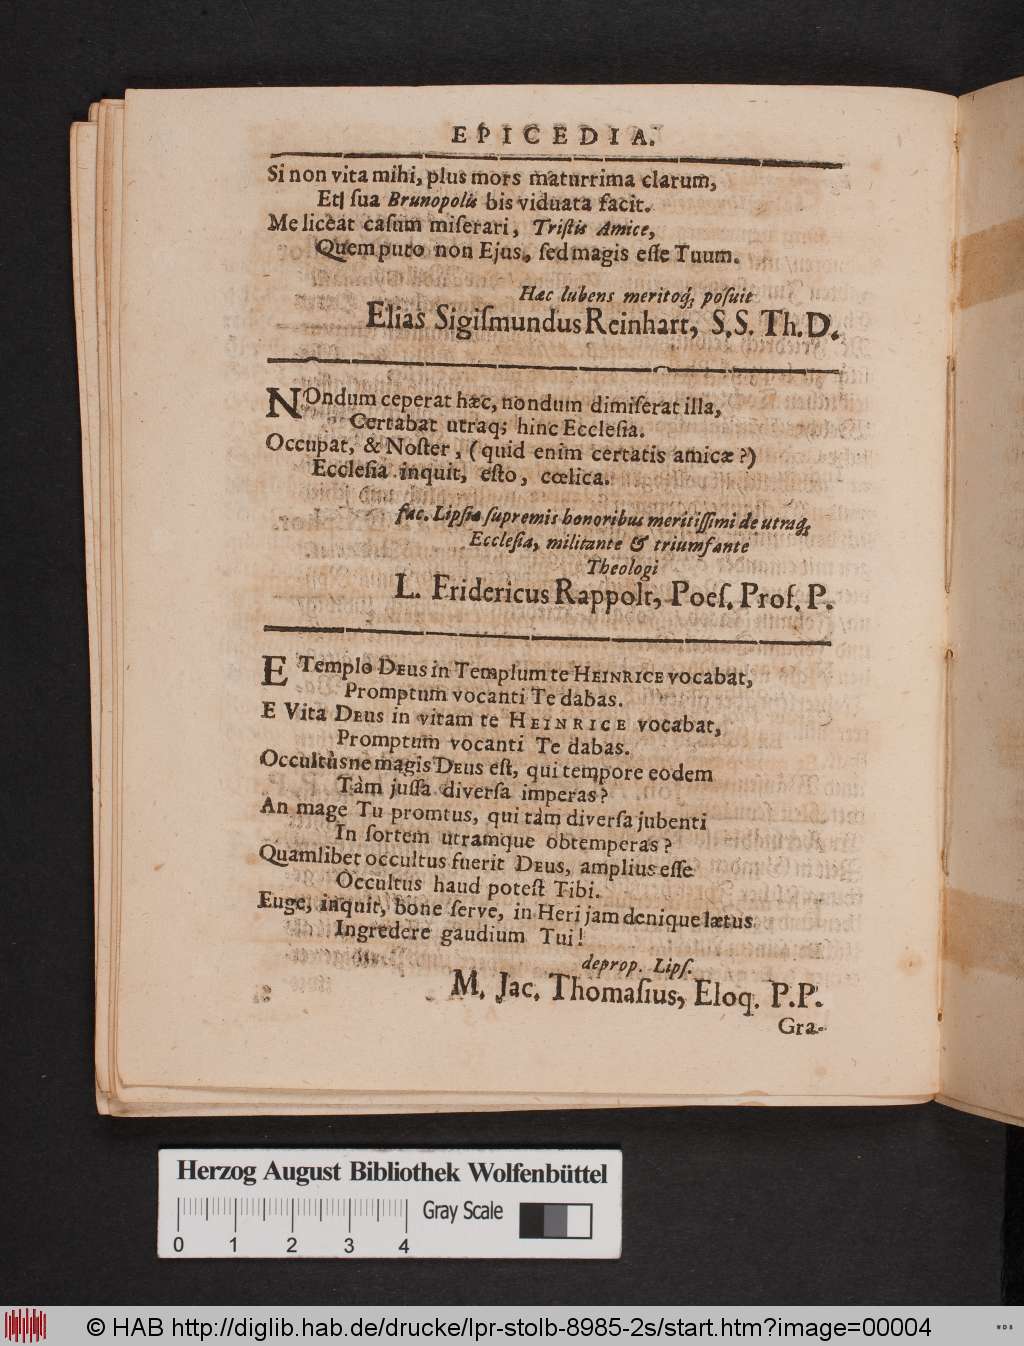 EPICEDIA.
Si non vita mihi, plus mors maturrima clarum,
Et sua Brunopolis bis viduata facit.
Me liceat casum miserari, Tristis Amice,
Quem puto non Ejus, sed magis esse Tuum.
Hæc lubens meritoq; posuit
Elias Sigiſmundus Reinhart, S.S. Th.D.
NOndum ceperat hæc, nondum dimiſerat illa,
Certabat utraq; hinc Eccleſia.
Occupat, & Noſter, (quid enim certatis amicæ?)
Eccleſia inquit, eſto, cœlica.
fac. Lipſiæ ſupremis honoribus meritiſſimi de utraq;
Eccleſia, militante & triumfante
Theologi
L. Fridericus Rappolt, Poeſ. Prof. P.
E Templo DEUS in Templum te HEINRICE vocabat,
Promptum vocanti Te dabas.
E Vita DEUS in vitam te HEINRICE vocabat,
Promptum vocanti Te dabas.
Occultùsne magis DEUS eſt, qui tempore eodem
Tàm juſſa diverſa imperas?
An mage Tu promtus, qui tàm diverſa jubenti
In ſortem utramque obtemperas?
Quamlibet occultus fuerit DEUS, amplius eſſe
Occultus haud poteſt Tibi.
Euge, inquit, bone ſerve, in Heri jam denique lætus
Ingredere gaudium Tui!
deprop. Lipſ.
M. Jac. Thomaſius, Eloq. P.P.
Gra-
Herzog August Bibliothek Wolfenbüttel
Gray Scale
0 1 2 3 4
© HAB http://diglib.hab.de/drucke/lpr-stolb-8985-2s/start.htm?image=00004